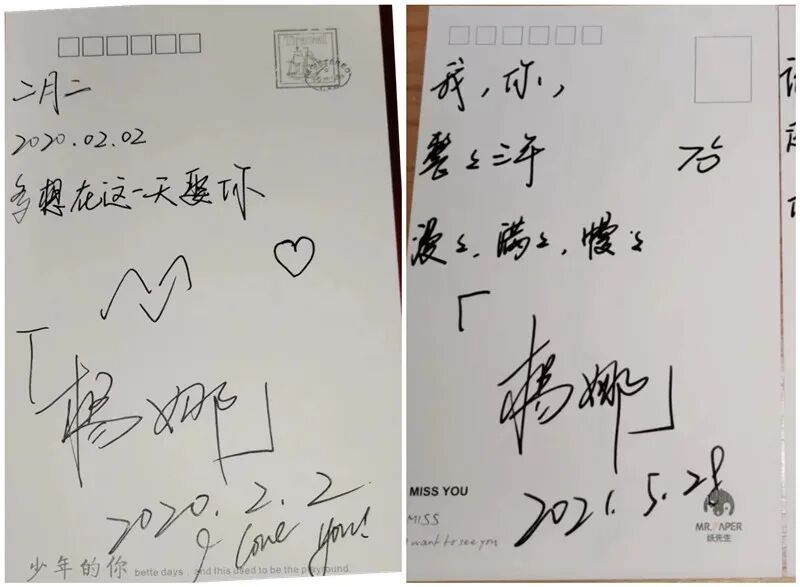 Travel
二月二
2020.02.02
多想在这一天娶你
「
杨娜」
2020.2.2
I Love You!
少年的你 bette days, and this used to be the playground
我,你,
整整三年
漫漫,满满,慢慢
「
杨娜」
2021.5.28
MISS YOU
MISS
I want to see you
MR.PAPER
纸先生